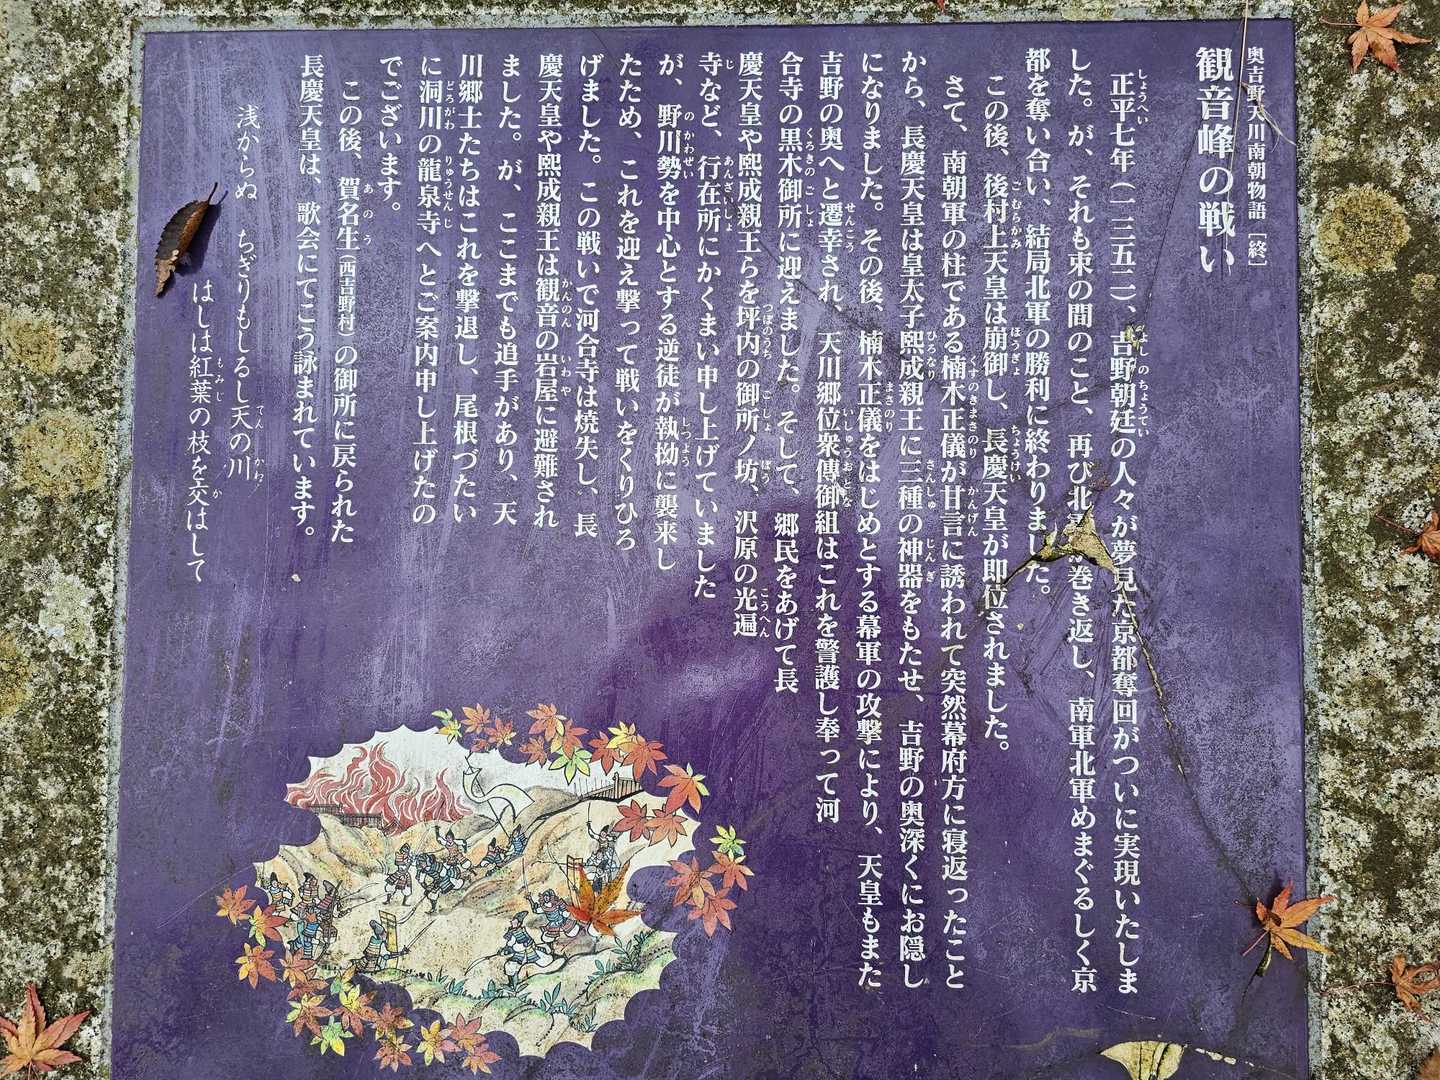 奥吉野天川南朝物語［終］
観音峰の戦い
正平七年（一三五二）、吉野朝廷の人々が夢見た京都奪回がついに実現いたしま
した。が、それも束の間のこと、再び北 巻き返し、南軍北軍めまぐるしく京
都を奪い合い、結局北軍の勝利に終わりました。
この後、後村上天皇は崩御し、長慶天皇が即位されました。
さて、南朝軍の柱である楠木正儀が甘言に誘われて突然幕府方に寝返ったこと
から、長慶天皇は皇太子熙成親王に三種の神器をもたせ、吉野の奥深くにお隠し
になりました。その後、楠木正儀をはじめとする幕軍の攻撃により、天皇もまた
吉野の奥へと遷幸され、天川郷位衆傳御組はこれを警護し奉って河
合寺の黒木御所に迎えました。そして、郷民をあげて長
慶天皇や熙成親王らを坪内の御所ノ坊、沢原の光遍
寺など、行在所にかくまい申し上げていました
が、野川勢を中心とする逆徒が執拗に襲来し
たため、これを迎え撃って戦いをくりひろ
げました。この戦いで河合寺は焼失し、長
慶天皇や熙成親王は観音の岩屋に避難され
ました。が、ここまでも追手があり、天
川郷士たちはこれを撃退し、尾根づたい
に洞川の龍泉寺へとご案内申し上げたの
でございます。
この後、賀名生（西吉野村）の御所に戻られた
長慶天皇は、歌会にてこう詠まれています。
浅からぬ ちぎりもしるし天の川
はしは紅葉の枝を交はして